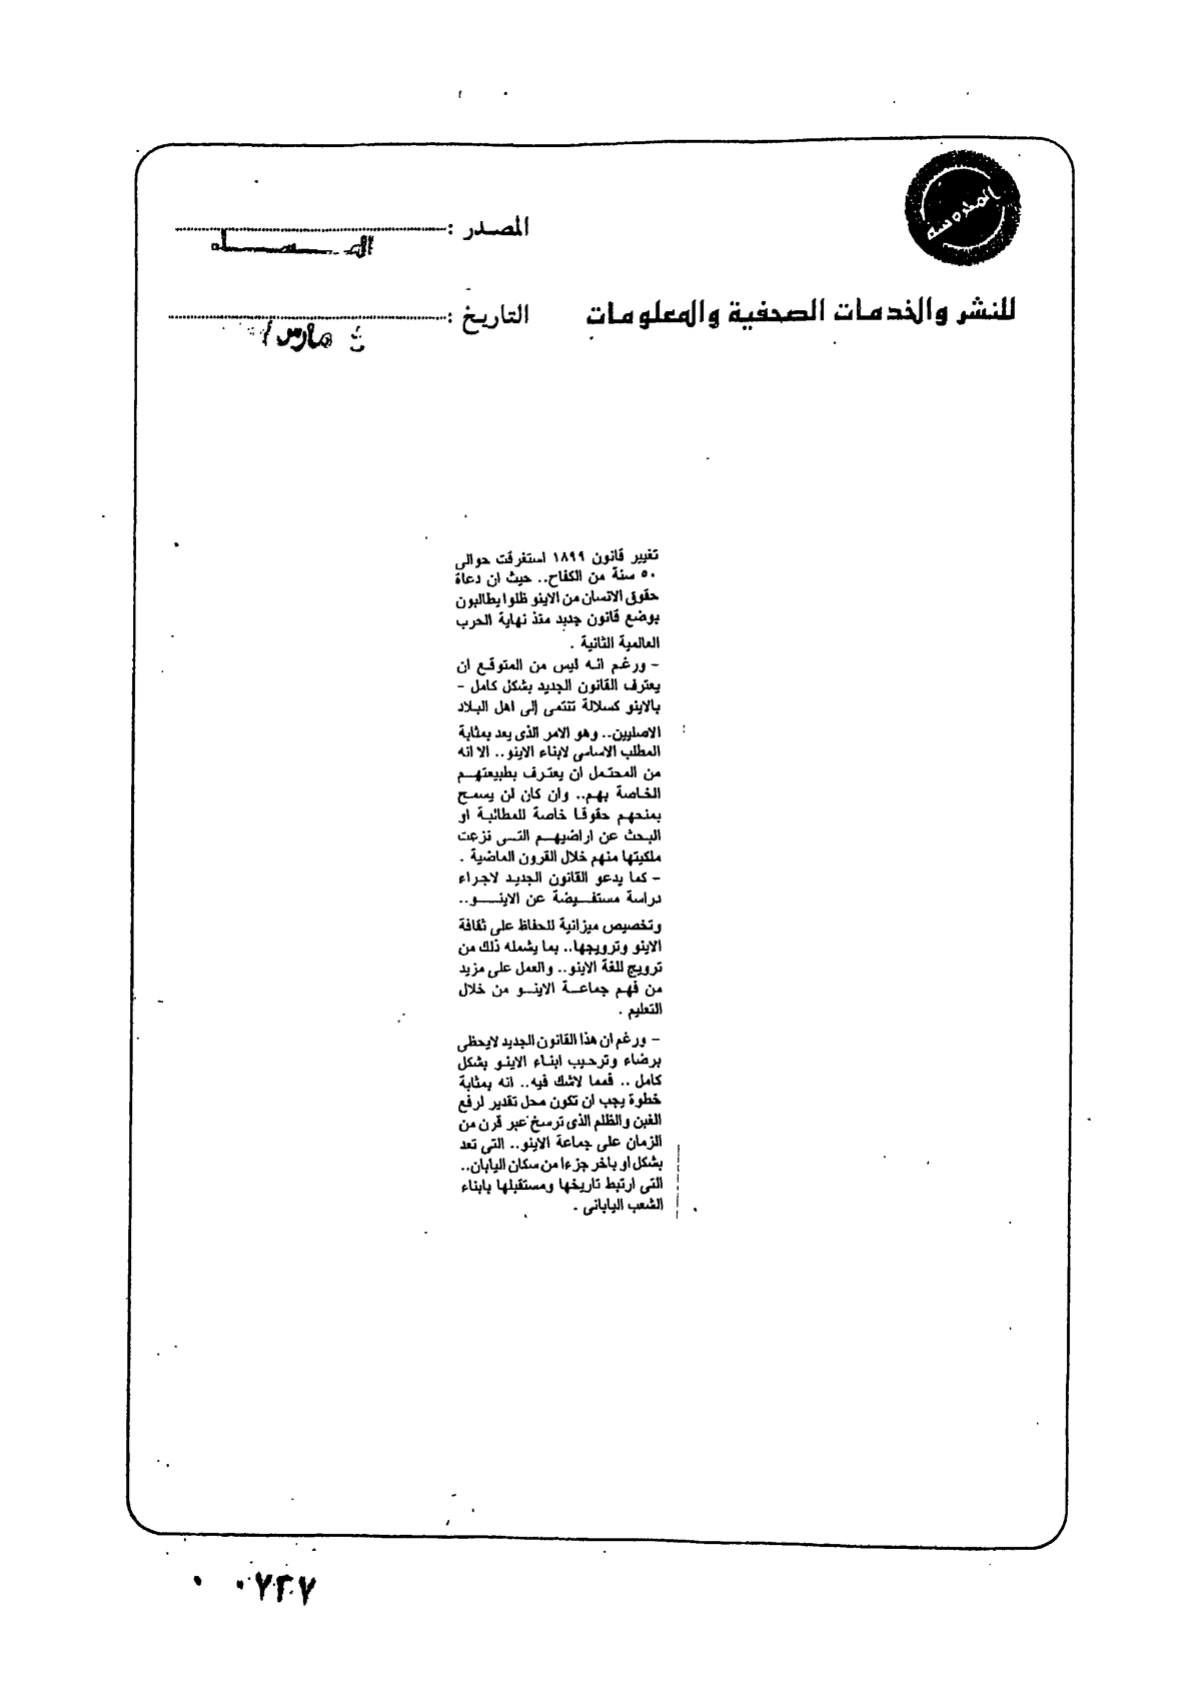 المحروسة
المصدر :
للنشر والخدمات الصحفية والمعلومات
التاريخ :
مارس
تغيير قانون ١٨٩٩ استغرقت حوالى
٥٠ سنة من الكفاح.. حيث ان دعاة
حقوق الانسان من الاينو ظلوا يطالبون
بوضع قانون جديد منذ نهاية الحرب
العالمية الثانية .
- ورغم انه ليس من المتوقع ان
يعترف القانون الجديد بشكل كامل -
بالاينو كسلالة تنتمى إلى اهل البلاد
الاصليين.. وهو الامر الذى يعد بمثابة
المطلب الاساسى لابناء الاينو.. الا انه
من المحتمل ان يعترف بطبيعتهم
الخاصة بهم.. وان كان لن يسمح
بمنحهم حقوقا خاصة للمطالبة او
البحث عن اراضيهم التى نزعت
ملكيتها منهم خلال القرون الماضية .
- كما يدعو القانون الجديد لاجراء
دراسة مستفيضة عن الاينو..
وتخصيص ميزانية للحفاظ على ثقافة
الاينو وترويجها.. بما يشمله ذلك من
ترويج للغة الاينو.. والعمل على مزيد
من فهم جماعة الاينو من خلال
التعليم .
- ورغم ان هذا القانون الجديد لايحظى
برضاء وترحيب ابناء الاينو بشكل
كامل .. فمما لاشك فيه.. انه بمثابة
خطوة يجب ان تكون محل تقدير لرفع
الغبن والظلم الذى ترسخ عبر قرن من
الزمان على جماعة الاينو.. التى تعد
بشكل او باخر جزءا من سكان اليابان..
التى ارتبط تاريخها ومستقبلها بابناء
الشعب اليابانى .
٠٠٧٢٧